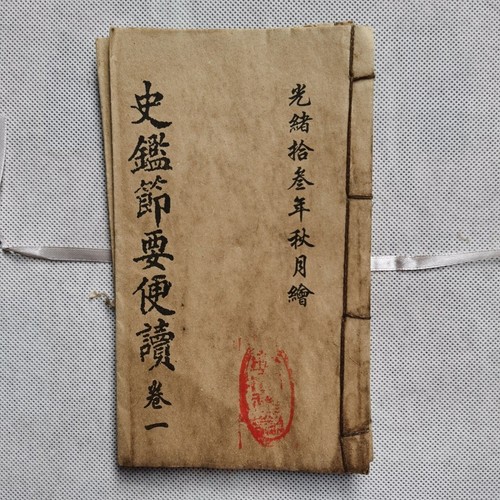 光緒拾叁年秋月繪
史鑑節要便讀 卷一